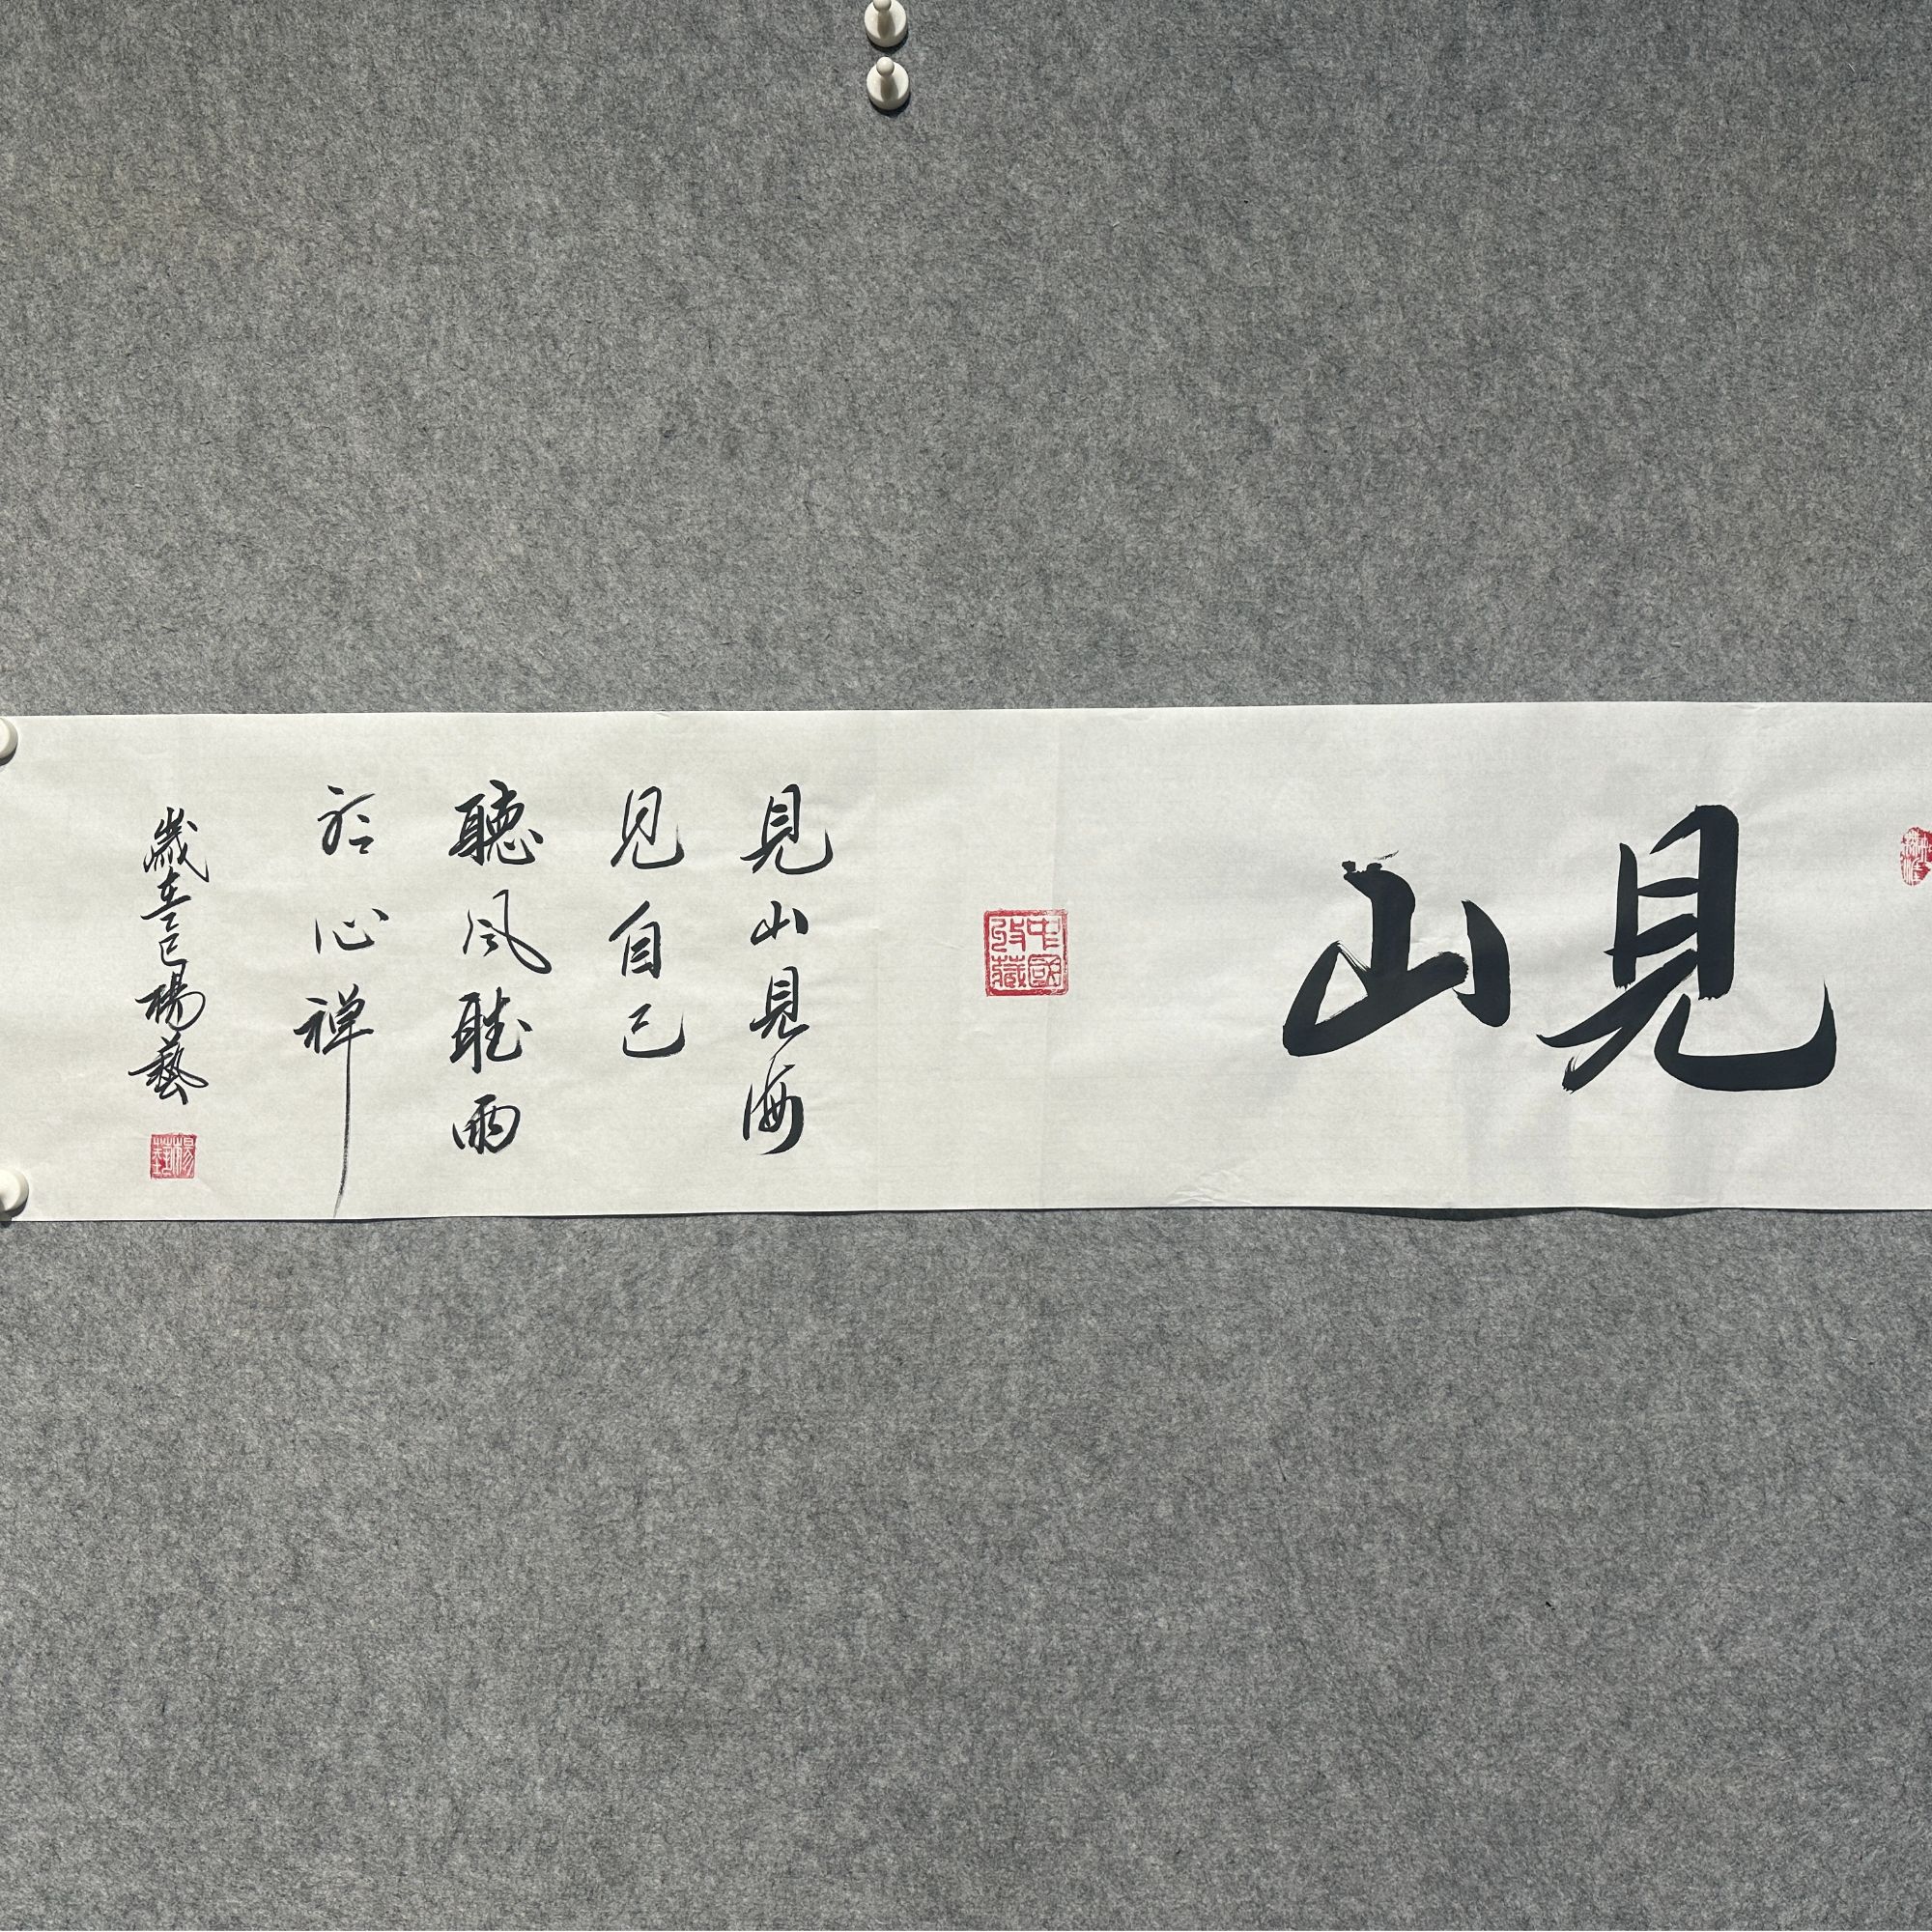 見山
中國收藏
見山見海
見自己
聽風聽雨
於心禅
歲在乙巳楊藝